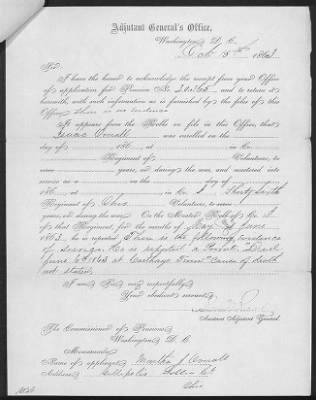 Adjutant General's Office,
Washington, D. C.
Oct 15th 1863
Sir:
I have the honor to acknowledge the receipt from your Office
of application for Pension No. and to return it
herewith, with such information as is furnished by the files of this
Office. There is no evidence
It appears from the Rolls on file in this Office, that
Isaac was enrolled on the
day of 186 , at in Co.
Regiment of Volunteers, to serve
years, or during the war, and mustered into
service as a on the day of
186 , at in Co. Thirty Sixth
Regiment of Ohio Volunteers, to serve
years, or during the war. On the Muster Roll of Co.
of that Regiment, for the months of May & June
1863, he is reported There is the following evidence
of service. He is reported a Private "Died
June 6th 1863 at Carthage Tenn" Cause of death
not stated
I am, Sir, very respectfully,
Your obedient servant,
Assistant Adjutant General.
The Commissioner of Pensions,
Washington, D. C.
Memoranda:
Name of applicant, Martha J.
Address, Gallipolis Gallia Co
Ohio